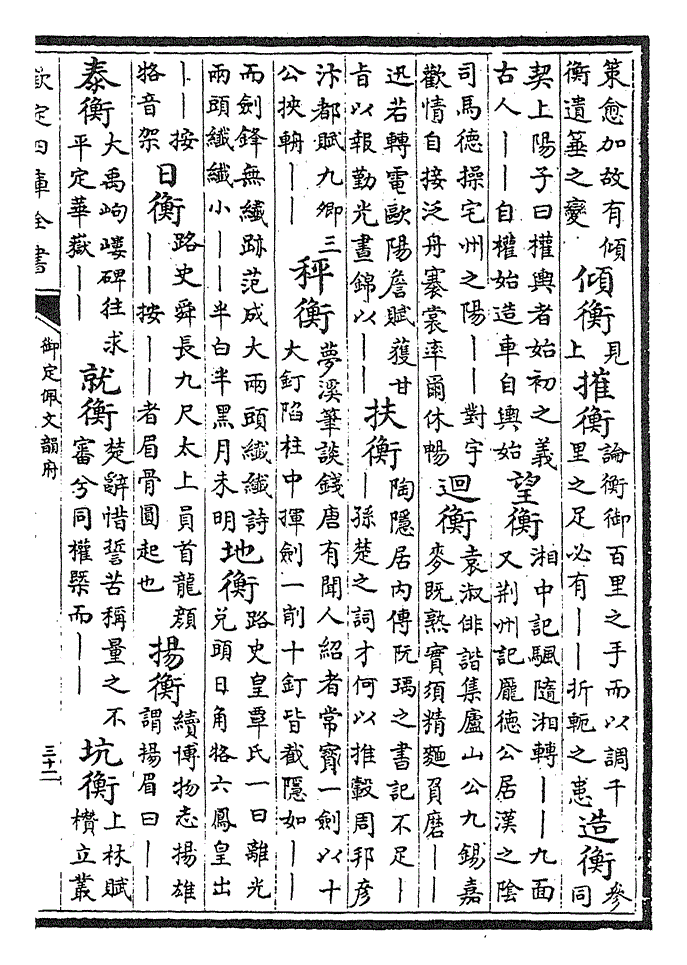 策愈加故有傾
衡遺箠之變
傾衡
見
上
摧衡
論衡御百里之手而以調千
里之足必有——折軛之患
造衡
參
同
契上陽子曰權輿者始初之義
古人——自權始造車自輿始
望衡
湘中記颿隨湘轉——九面
又荆州記龐德公居漢之陰
司馬德操宅州之陽——對宇
歡情自接泛舟褰裳率爾休暢
迴衡
袁淑俳諧集廬山公九錫嘉
麥既熟實須精麵負磨——
迅若轉電歐陽詹賦獲甘
旨以報勤光晝錦以——
扶衡
陶隱居内傳阮瑀之書記不足—
—孫楚之詞才何以推轂周邦彦
汴都賦九卿三
公挾輈——
秤衡
夢溪筆談錢唐有聞人紹者常寳一劍以十
大釘陷柱中揮劍一削十釘皆截隱如——
而劍鋒無纎跡范成大兩頭纎纎詩
兩頭纎纎小——半白半黑月未明
地衡
路史皇覃氏一曰離光
兌頭日角六鳳皇出
——按
音架
日衡
路史舜長九尺太上員首龍顔
——按——者眉骨圓起也
揚衡
續博物志揚雄
謂揚眉曰——
泰衡
大禹岣嶁碑往求
平定華嶽——
就衡
楚辭惜誓苦稱量之不
審兮同權槩而——
坑衡
上林賦
欑立叢
欽定四庫全書
御定佩文韻府
三十二